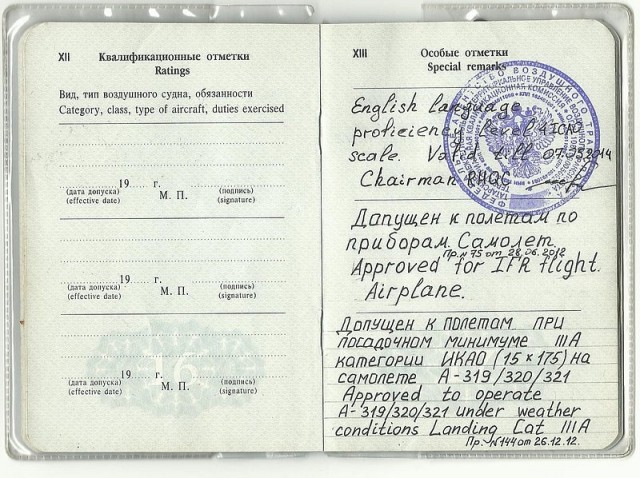 XII Квалификационные отметки
Ratings
Вид, тип воздушного судна, обязанности
Category, class, type of aircraft, duties exercised
19 г.
(дата допуска) М. П. (подпись)
(effective date) (signature)
19 г.
(дата допуска) М. П. (подпись)
(effective date) (signature)
19 г.
(дата допуска) М. П. (подпись)
(effective date) (signature)
16
XIII Особые отметки
Special remarks
English language
proficiency level 4 ICAO
scale. Valid till 07.05.2014
Chairman RHQC
Допущен к полетам по
приборам. Самолет.
Пр. №75 от 28.06.2012
Approved for IFR flight.
Airplane.
Допущен к полетам при
посадочном минимуме IIIA
категории ИКАО (15×175) на
самолете А-319/320/321
Approved to operate
A-319/320/321 under weather
conditions Landing Cat IIIA
Пр. №144 от 26.12.12.